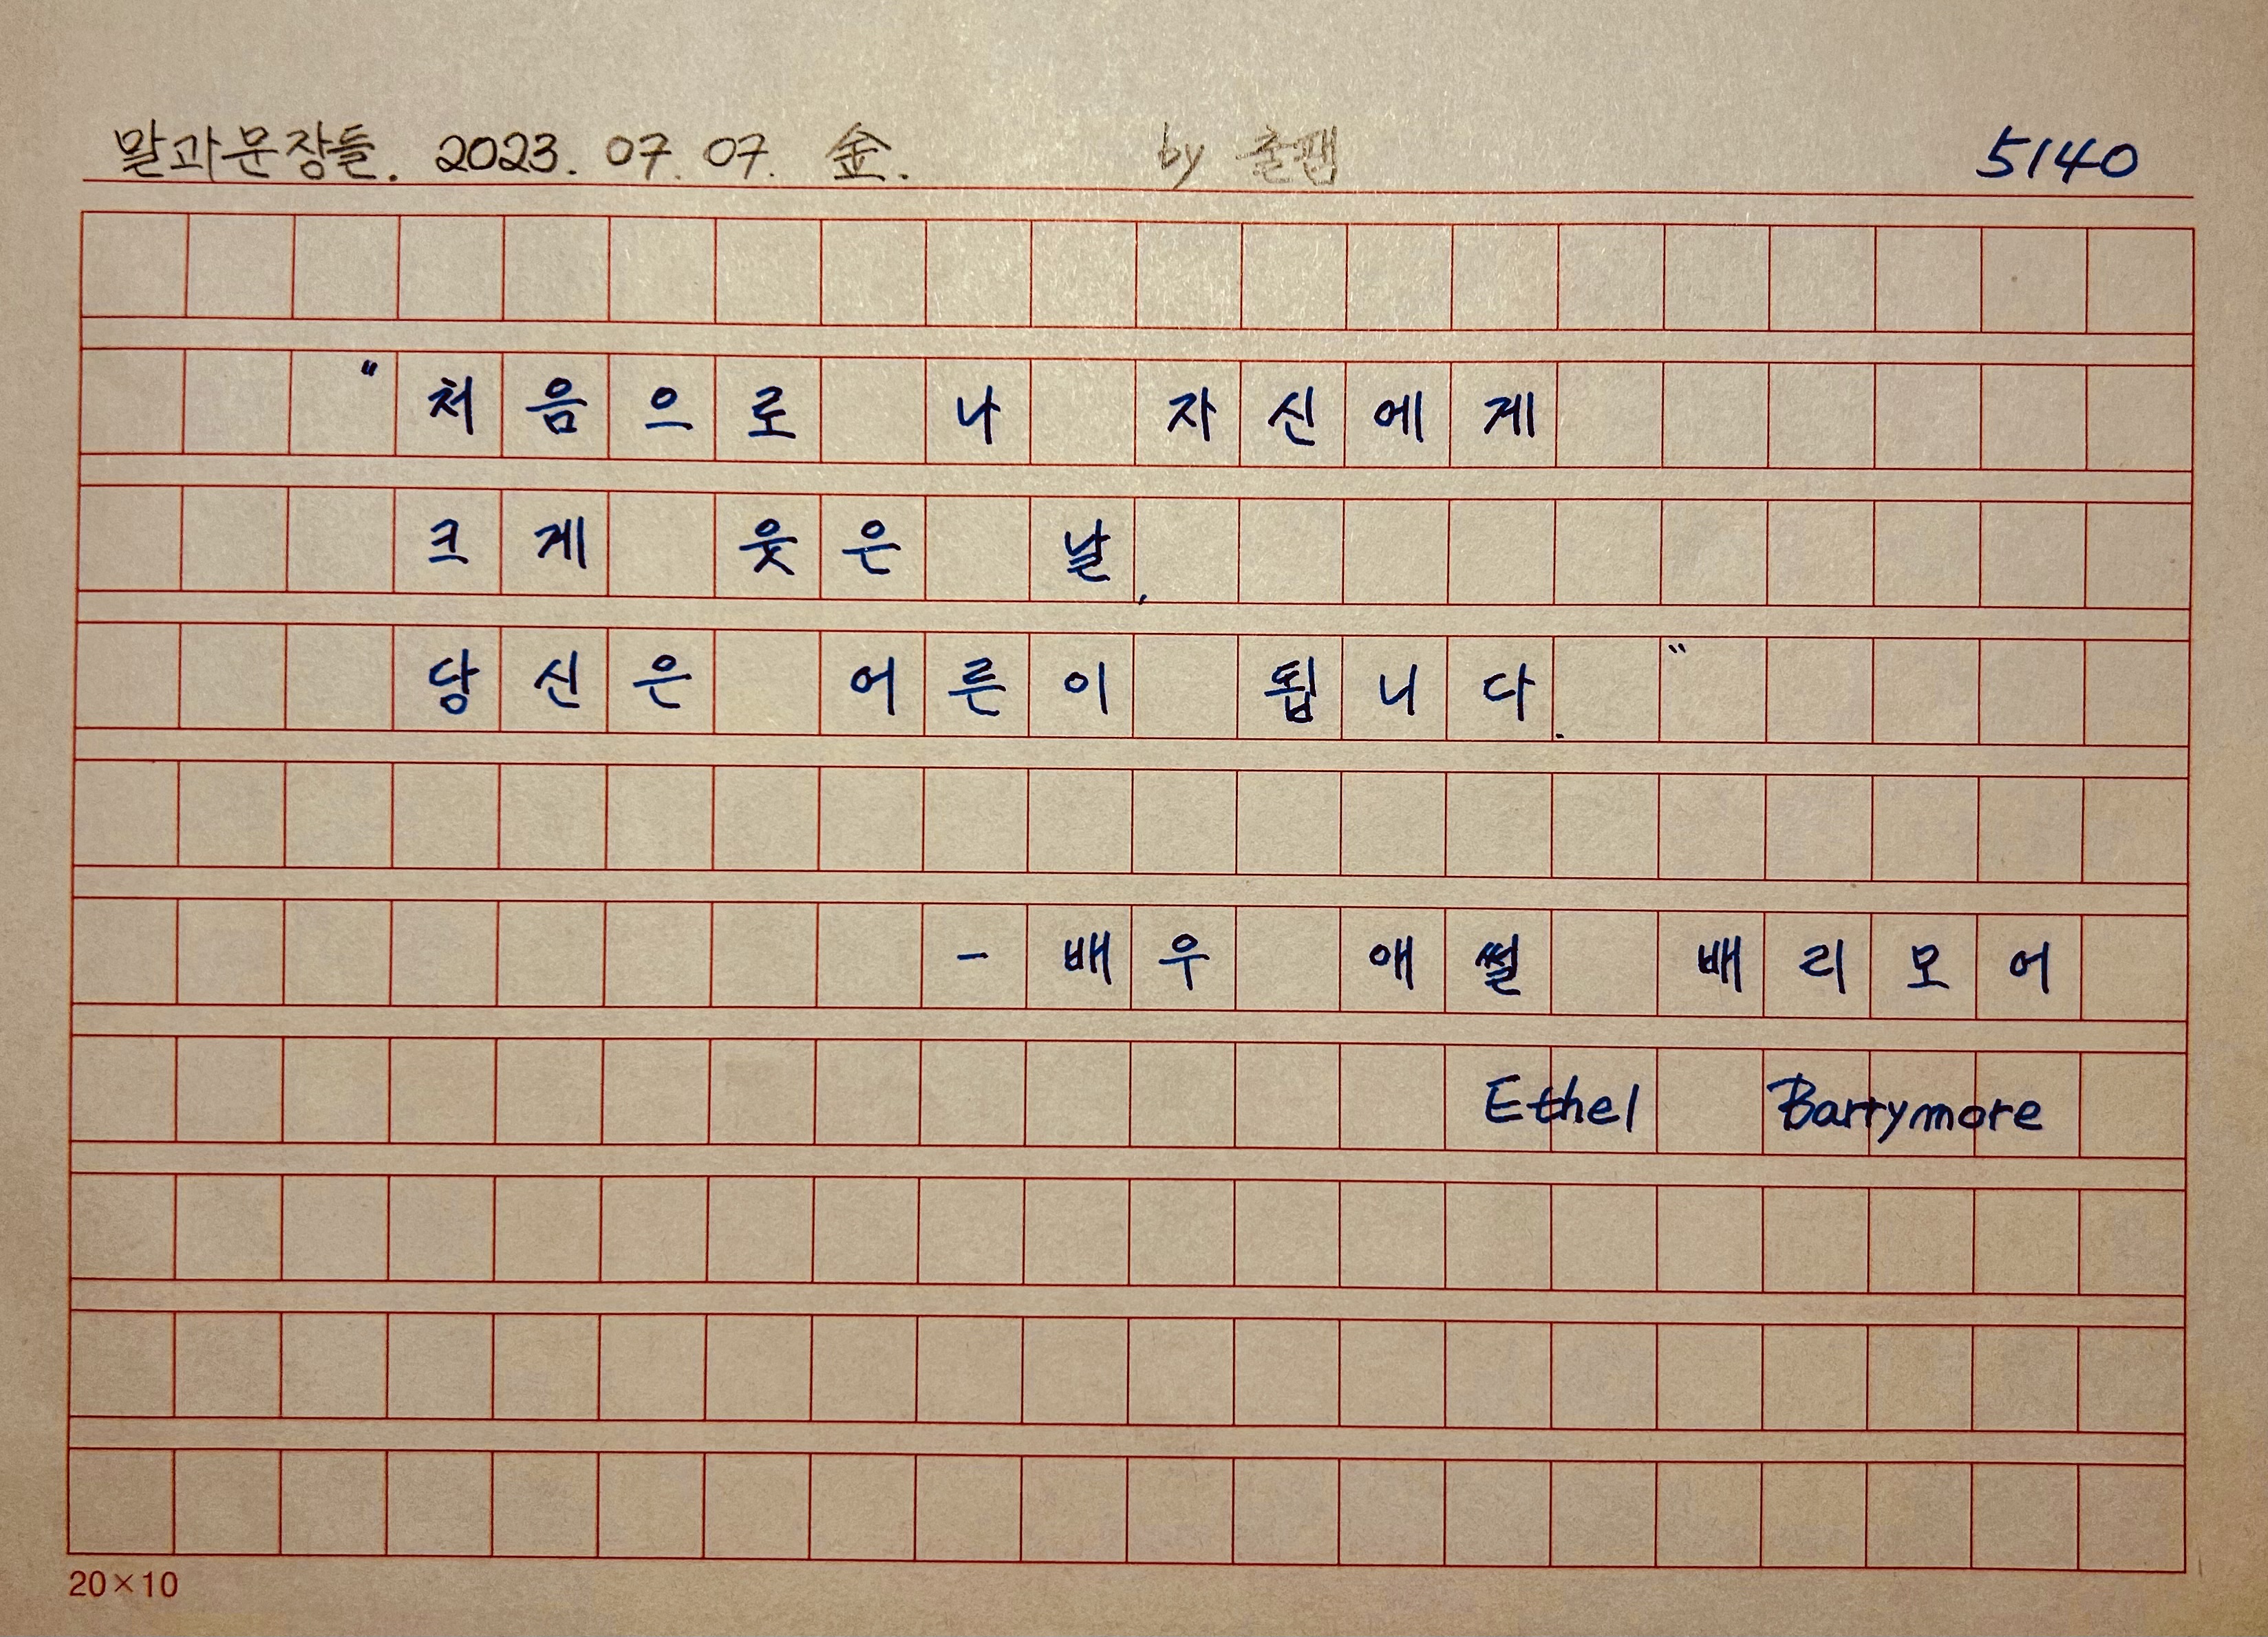 말과문장들. 2023. 07. 07. 金. by 5140
"처음으로 나 자신에게
크게 웃은 날,
당신은 어른이 됩니다."
- 배우 애썰 배리모어
Ethel Barrymore
20×10